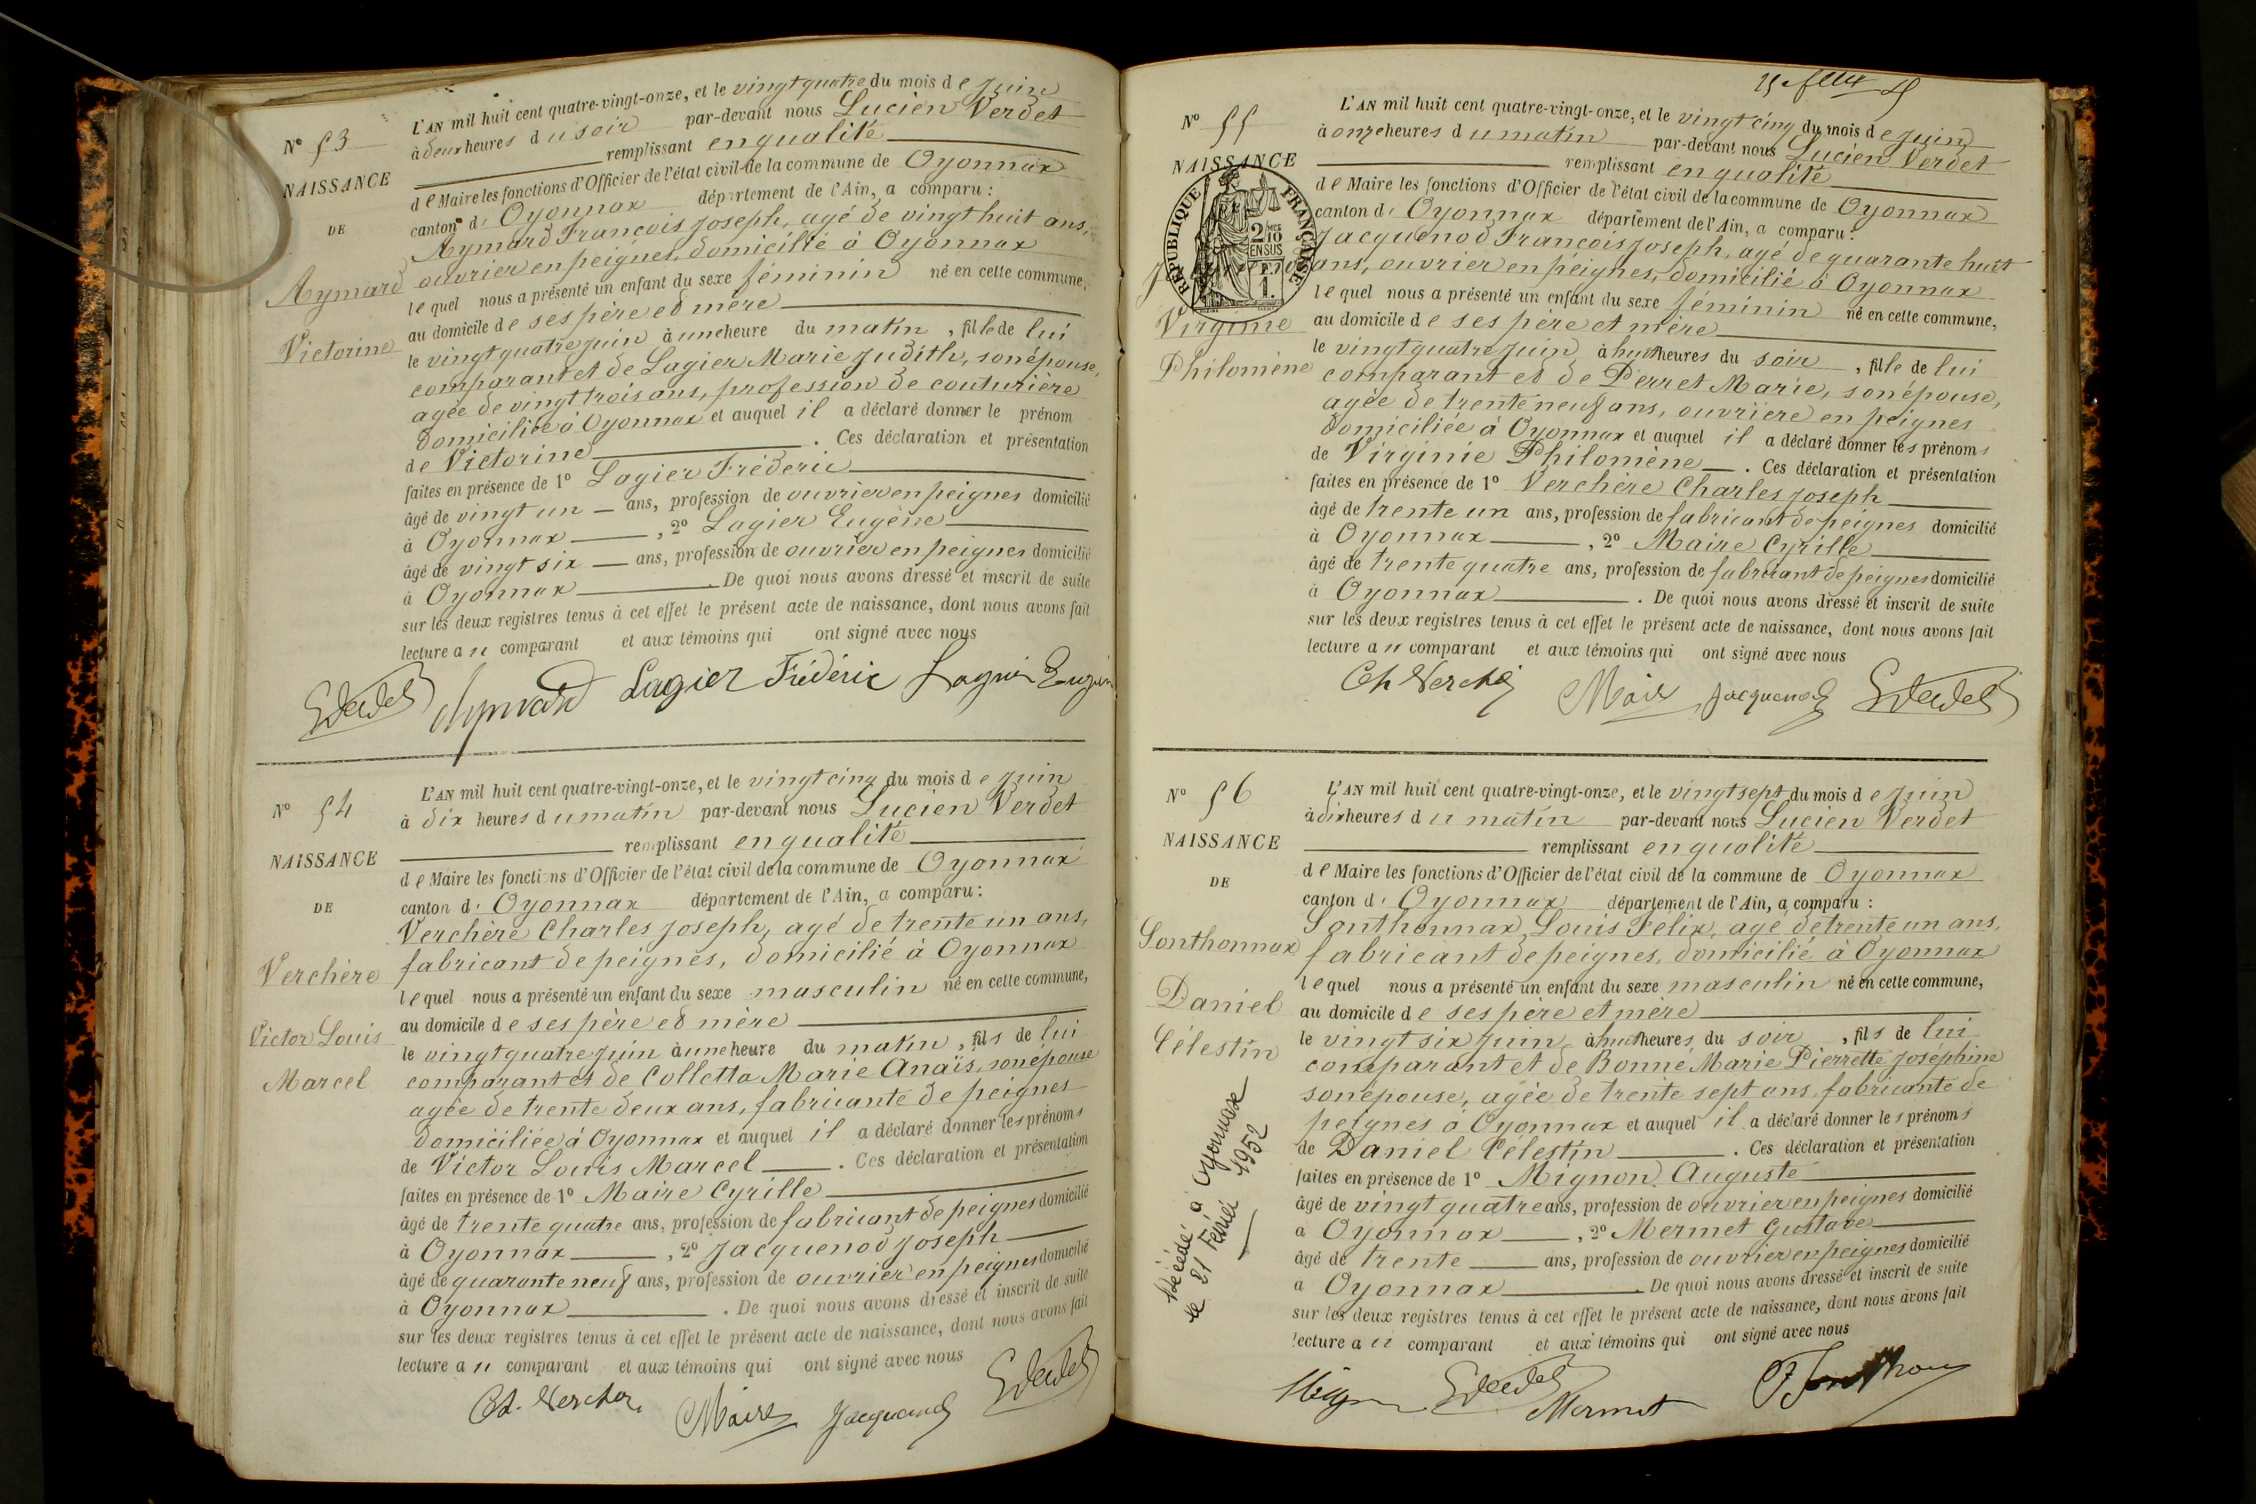 N° 53
NAISSANCE
DE
Aymard
Victorine
L'AN mil huit cent quatre-vingt-onze, et le vingt quatre du mois de Juin
à deux heures du soir par-devant nous Lucien Verdet
remplissant en qualité
de Maire les fonctions d'Officier de l'état civil de la commune de Oyonnax
canton d' Oyonnax département de l'Ain, a comparu :
Aymard François Joseph, agé de vingt huit ans,
ouvrier en peignes, domicilié à Oyonnax
lequel nous a présenté un enfant du sexe féminin né en cette commune,
au domicile de ses père et mère
le vingt quatre juin à une heure du matin, fille de lui
comparant et de Lagier Marie Judith, son épouse,
agée de vingt trois ans, profession de couturière
domiciliée à Oyonnax et auquel il a déclaré donner le prénom
de Victorine . Ces déclaration et présentation
faites en présence de 1° Lagier Fréderic
âgé de vingt un ans, profession de ouvrier en peignes domicilié
à Oyonnax , 2° Lagier Eugène
âgé de vingt six ans, profession de ouvrier en peignes domicilié
à Oyonnax . De quoi nous avons dressé et inscrit de suite
sur les deux registres tenus à cet effet le présent acte de naissance, dont nous avons fait
lecture au comparant et aux témoins qui ont signé avec nous
Aymard Lagier Fréderic Lagier Eugèn
N° 54
NAISSANCE
DE
Verchère
Victor Louis
Marcel
L'AN mil huit cent quatre-vingt-onze, et le vingt cinq du mois de Juin
à dix heures du matin par-devant nous Lucien Verdet
remplissant en qualité
de Maire les fonctions d'Officier de l'état civil de la commune de Oyonnax
canton d' Oyonnax département de l'Ain, a comparu :
Verchère Charles Joseph, agé de trente un ans,
fabricant de peignes, domicilié à Oyonnax
lequel nous a présenté un enfant du sexe masculin né en cette commune,
au domicile de ses père et mère
le vingt quatre juin à une heure du matin, fils de lui
comparant et de Colletta Marie Anaïs, son épouse
agée de trente deux ans, fabricante de peignes
domiciliée à Oyonnax et auquel il a déclaré donner les prénoms
de Victor Louis Marcel . Ces déclaration et présentation
faites en présence de 1° Maire Cyrille
âgé de trente quatre ans, profession de fabricant de peignes domicilié
à Oyonnax , 2° Jacquenod Joseph
âgé de quarante neuf ans, profession de ouvrier en peignes domicilié
à Oyonnax . De quoi nous avons dressé et inscrit de suite
sur les deux registres tenus à cet effet le présent acte de naissance, dont nous avons fait
lecture au comparant et aux témoins qui ont signé avec nous
Ch. Verchère Maire Jacquenod
N° 55
NAISSANCE
RÉPUBLIQUE FRANÇAISE
2/10 EN SUS
Virginie
Philomène
L'AN mil huit cent quatre-vingt-onze, et le vingt cinq du mois de Juin
à onze heures du matin par-devant nous Lucien Verdet
remplissant en qualité
de Maire les fonctions d'Officier de l'état civil de la commune de Oyonnax
canton d' Oyonnax département de l'Ain, a comparu :
Jacquenod François Joseph, agé de quarante huit
ans, ouvrier en peignes, domicilié à Oyonnax
lequel nous a présenté un enfant du sexe féminin né en cette commune,
au domicile de ses père et mère
le vingt quatre juin à huit heures du soir, fille de lui
comparant et de Perret Marie, son épouse,
agée de trente neuf ans, ouvrière en peignes
domiciliée à Oyonnax et auquel il a déclaré donner les prénoms
de Virginie Philomène . Ces déclaration et présentation
faites en présence de 1° Verchère Charles Joseph
âgé de trente un ans, profession de fabricant de peignes domicilié
à Oyonnax , 2° Maire Cyrille
âgé de trente quatre ans, profession de fabricant de peignes domicilié
à Oyonnax . De quoi nous avons dressé et inscrit de suite
sur les deux registres tenus à cet effet le présent acte de naissance, dont nous avons fait
lecture au comparant et aux témoins qui ont signé avec nous
Ch Verchè Maire Jacquenod
N° 56
NAISSANCE
DE
Sonthonnax
Daniel
Célestin
Décédé à Oyonnax
le 21 Février 1952
L'AN mil huit cent quatre-vingt-onze, et le vingt sept du mois de Juin
à dix heures du matin par-devant nous Lucien Verdet
remplissant en qualité
de Maire les fonctions d'Officier de l'état civil de la commune de Oyonnax
canton d' Oyonnax département de l'Ain, a comparu :
Sonthonnax Louis Felix, agé de trente un ans,
fabricant de peignes, domicilié à Oyonnax
lequel nous a présenté un enfant du sexe masculin né en cette commune,
au domicile de ses père et mère
le vingt six juin à huit heures du soir, fils de lui
comparant et de Bonne Marie Pierrette Joséphine
son épouse, agée de trente sept ans, fabricante de
peignes à Oyonnax et auquel il a déclaré donner les prénoms
de Daniel Célestin . Ces déclaration et présentation
faites en présence de 1° Mignon Auguste
âgé de vingt quatre ans, profession de ouvrier en peignes domicilié
à Oyonnax , 2° Mermet Gustave
âgé de trente ans, profession de ouvrier en peignes domicilié
à Oyonnax De quoi nous avons dressé et inscrit de suite
sur les deux registres tenus à cet effet le présent acte de naissance, dont nous avons fait
lecture au comparant et aux témoins qui ont signé avec nous
Mermet